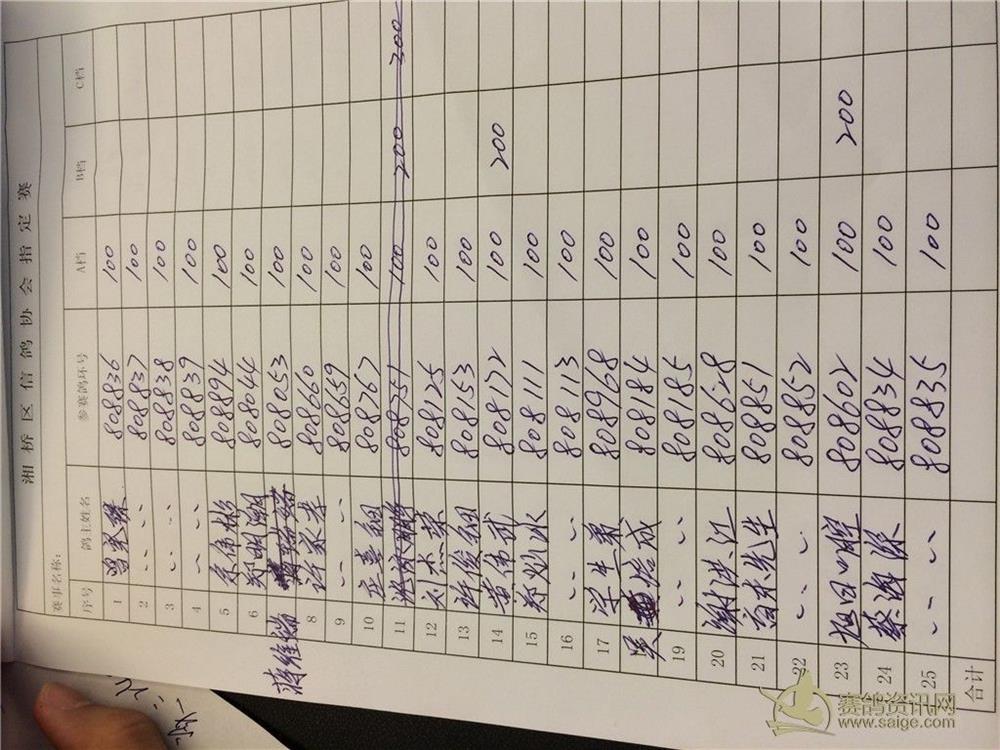 湘桥区信鸽协会指定赛
赛事名称：
序号 鸽主姓名 参赛鸽环号 A档 B档 C档
1 808836 100
2 〃 808837 100
3 〃 808838 100
4 〃 808839 100
5 808894 100
6 郑明潮 808044 100
蒋维锴 808053 100
8 许家丰 808660 100
9 〃 808659 100
10 808767 100
11 808751 100 200 300
12 808125 100
13 许俊钿 808153 100
14 黄伟武 808172 100 200
15 郑灿水 808111 100
16 〃 808113 100
17 808968 100
吴 浩成 808184 100
19 〃 808185 100
20 谢洪江 808628 100
21 先生 808851 100
22 〃 808852 100
23 旭日 808602 100 200
24 蔡 808834 100
25 〃 808835 100
合计
赛鸽资讯网
www.saige.com